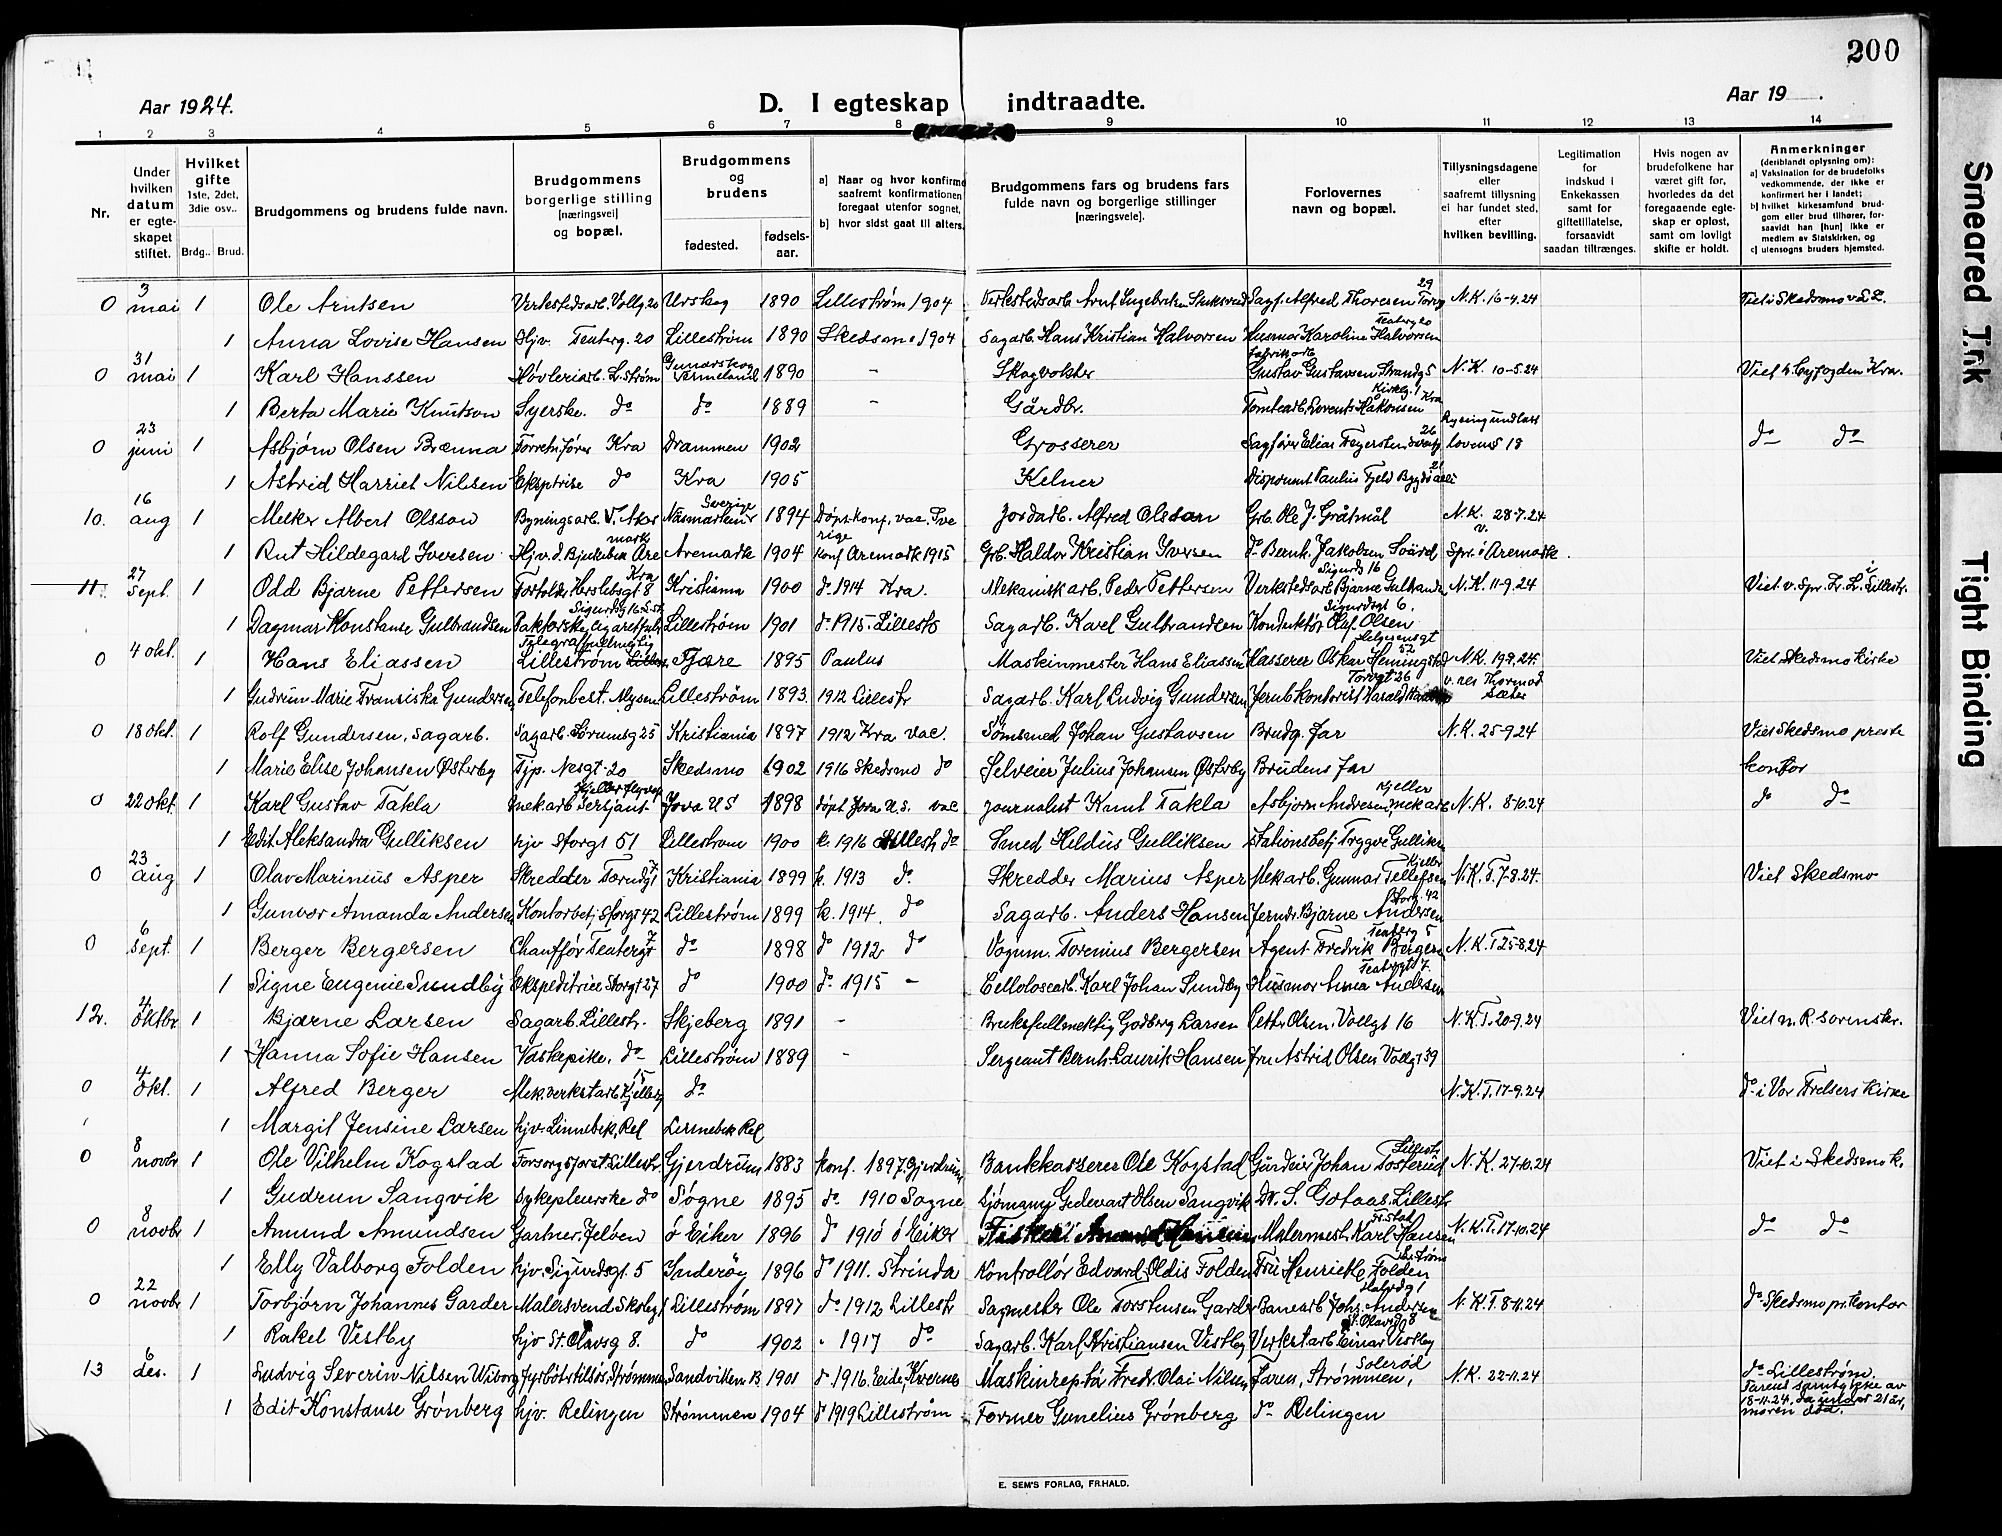 200
Aar 1924.
D. I egteskap indtraadte.
Aar 19 .
1 2 3 4 5 6 7 8 9 10 11 12 13 14
Nr.
Under hvilken datum er egte- skapet stiftet.
Hvilket gifte 1ste, 2det, 3die osv..
Brdg.. Brud.
Brudgommens og brudens fulde navn.
Brudgommens borgerlige stilling [næringsvei] og bopæl.
Brudgommens og brudens
fødested. fødsels- aar.
a) Naar og hvor konfirme saafremt konfirmationen foregaat utenfor sognet,
b) hvor sidst gaat til alters.
Brudgommens fars og brudens fars fulde navn og borgerlige stillinger [næringsveie].
Forlovernes navn og bopæl.
Tillysningsdagene eller saafremt tillysning ei har fundet sted, efter hvilken bevilling.
Legitimation for indskud i Enkekassen samt for giftetillatelse, forsaavidt saadan tiltrænges.
Hvis nogen av brudefolkene har været gift før, hvorledes da det foregaaende egte- skap er opløst, samt om lovligt skifte er holdt.
Anmerkninger (deriblandt oplysning om): a) Vaksination for de brudefolks vedkommende, der ikke er konfirmert her i landet; b) hvilket kirkesamfund brud- gom eller brud tilhører, for- saavidt han [hun] ikke er medlem av Statskirken, og c) utensogns bruders hjemsted.
0 3 mai 1 Ole Arntsen Verkstedsarb. Vollg. 20 Urskog 1890 Lillestrøm 1904 Verkstedsarb Arnt Sagf. Alfred Thoresen 29 N.K. 16-4.24 Viet i Skedsmo v
1 Anna Lovise Hansen Hjv. Teaterg. 20 Lillestrøm 1890 Skedsmo 1904 Sagarb. Hans Kristian Halvorsen Husmor Karoline Halvorsen Teaterg 20
0 31 mai 1 Karl Hanssen Høvleriarb. L.strøm Gunarskog Vermeland 1890 - Skogvokter Fabrikarb Gustav Gustavsen Strandg 5 N.K. 10-5.24 Viet h. byfogden Kra.
1 Berta Marie Knutson Syerske. do do 1889 - Gårdbr. Tomtearb. Lorents Håkonsen Kirkeg. 1 Kra
0 23 juni 1 Asbjørn Olsen Brænna Forretn.fører Kra Drammen 1902 Grosserer Sagfører Elias 26 lovens 18 do do
1 Astrid Harriet Nilsen Eksptrise do Kra 1905 Kelner Disponent Paulus Fjeld Bygdø alle 21
10. 16 aug 1 Melker Albert Olsson Bygningsarb. V. Aker Sverige 1894 Døpt, konf., vac. Sve rige Jordarb. Alfred Olsson Grb. Ole J. Gråtmål N.K. 28-7.24
1 Rut Hildegard Iversen Hjv. d. Bjerkebæk Are mark Aremark 1904 Konf Aremark 1915 Grb. Haldor Kristian Iversen do Bernh. Jakobsen Svärd v. Spr. i Aremark.
11. 27 sept. 1 Odd Bjarne Pettersen Forfolder Herslebsgt 8 Kra Kristiania 1900 do 1914 Kra. Mekanik arb. Peder Pettersen Verkstedsarb Bjarne Gulbrands Sigurds 16 N.K. 11-9.24 Viet v. Spr. L. L. i Lillestr.
1 Dagmar Konstanse Gulbrandsen Pakkerske cigaretfabr Sigurdsg 16 L.st. Lillestrøm 1901 do 1915. Lillestr Sagarb. Karel Gulbrandsen Konduktør Olaf Olsen Sigurdsgt 6.
0 4 okt. 1 Hans Eliassen Telegraffullmektig Lillestrøm Fjære 1895 Paulus Maskinmester Hans Eliassen Kasserer Oskar Hemingstad 52 N.K. 19.9.24. Viet Skedsmo kirke
1 Gudrun Marie Fransiska Gundersen Telefonbest. Mysen Lillestrøm 1893. 1912 Lillestr Sagarb. Karl Ludvig Gundersen Jernb kontorist Harald Torvgt 26 v. res Thormod Sæter
0 18 okt. 1 Rolf Gundersen, sagarb. Sagarb. Brumsg 25 Kristiania 1897 1912 Kra vac. Sømsmed Johan Gustavsen Brudg. far N.K. 25-9.24 Viet Skedsmo preste
1 Marie Elise Johansen Østerby Tjp. Nesgt. 20 Skedsmo 1902 1916 Skedsmo do Selveier Julius Johansen Østerby Brudens far kontor
0 22 okt. 1 Karl Gustav Takla mek arb Sersjant Kjeller flyvep Jova US 1898 døpt Jova U.S. vac Journalist Knut Takla Asbjørn Andresen, mek arb Kjeller N.K. 8-10.24 do do
1 Edit Aleksandra Gulliksen hjv Storgt 51 Lillestrøm 1900 k. 1916 Lillestr do Smed Hildus Gulliksen Stationsbetj Trygve Gulliksen
0 23 aug 1 Olav Marinius Asper Skredder Torvdgt 7 Kristiania 1899 k. 1913 do. Skredder Marius Asper Mekarb. Gunnar Tellefsen Kjeller N.K.T. 7-8.24. Viet Skedsmo
1 Gunvor Amanda Andersen Kontorbetj. Storgt 42 Lillestrøm 1899 k. 1914. do Sagarb. Anders Hansen Jerndr. Bjarne Andersen Storg. 42
0 6 sept. 1 Berger Bergersen Chauffør Teatergt 7 do 1898 do 1912 do Vognm. Torenius Bergersen Agent Fredrik Bergersen Teaterg 5 N.K.T 25-8.24
1 Signe Eugenie Sundby Ekspeditrice Storgt 27 do 1900 do 1915 - Cellolosearb. Karl Johan Sundby Husmor Anna Andersen Teatergt 7.
12. 4 oktbr 1 Bjarne Larsen Sagarb. Lillestr. Skjeberg 1891 - Bruksfullmektig Godberg Larsen Petter Olsen, Vollgt 16 N.K.T. 20-9.24 Viet n. R. sorenskr.
1 Hanna Sofie Hansen Vaskepike. do Lillestrøm 1889 - Sergeant Bernh. Laurits Hansen fru Astrid Olsen Vollgt 39
0 4 okt. 1 Alfred Berger Mek. verkstarb Kjellerg 15 do N.K.T. 17-9.24 do i Vor Frelsers Kirke
1 Margit Jensine Larsen hjv. Linnebek, Rel Linnebek Rel
0 8 novbr 1 Ole Vilhelm Kogstad Forsorgsforst. Lillestr. Gjerdrum 1883 konf. 1897. Gjerdrum Bankkasserer Ole Kogstad Gårdeier Johan Tosterud Lillestr. N.K. 27-10.24 Viet i Skedsmo k.
1 Gudrun Sangvik Sykepleierske do Søgne 1895 do. 1910 Søgne Sjømann Gedevart Olsen Sangvik Dr. S. Gotaas. Lillestr
0 8 novbr 1 Amund Amundsen Gartner. Jeløen ø Eiker 1896 do 1910 ø Eiker Fisker Malermest. Karl Hansen Fr.stad N.K.T. 17-10.24 do do
1 Elly Valborg Folden hjv. Sigurdsgt. 5 Inderøy 1896 do 1911. Strinda Kontrollør Edvard Oldis Folden Fru Henriette Folden L.strøm
0 22 novbr 1 Torbjørn Johannes Garder Malersvend Skoleg 1 Lillestrøm 1897 do 1912 Lillestr Sagmester Ole Torstensen Garder Banearb Johs. Andersen N.K.T. 8-11.24 do Skedsmo pr. kontor
1 Rakel Vestby hjv St. Olavsg 8. do 1902 " 1917 do Sagarb. Karl Kristiansen Vestby Verkstarb Einar Vestby St. Olavsg 8
13 6 des. 1 Ludvig Severin Nilsen Wiborg Fyrbøter tilsjøs, Strømmen Sandviken B. 1901 do 1916 Eide, Kvernes Maskinrep.tør Fredr Olai Nilsen Faren, Strømmen, Solerød N.K. 22-11.24 do Lillestrøm. Farens samtykke av 18-11.24. da under 21 år, moren død.
1 Edit Konstanse Grønberg hjv. Relingen Strømmen 1904 do 1919 Lillestrøm Former Gunelius Grønberg do Relingen
E. SEM'S FORLAG, FR.HALD.
Smeared T.fk
Tight Binding